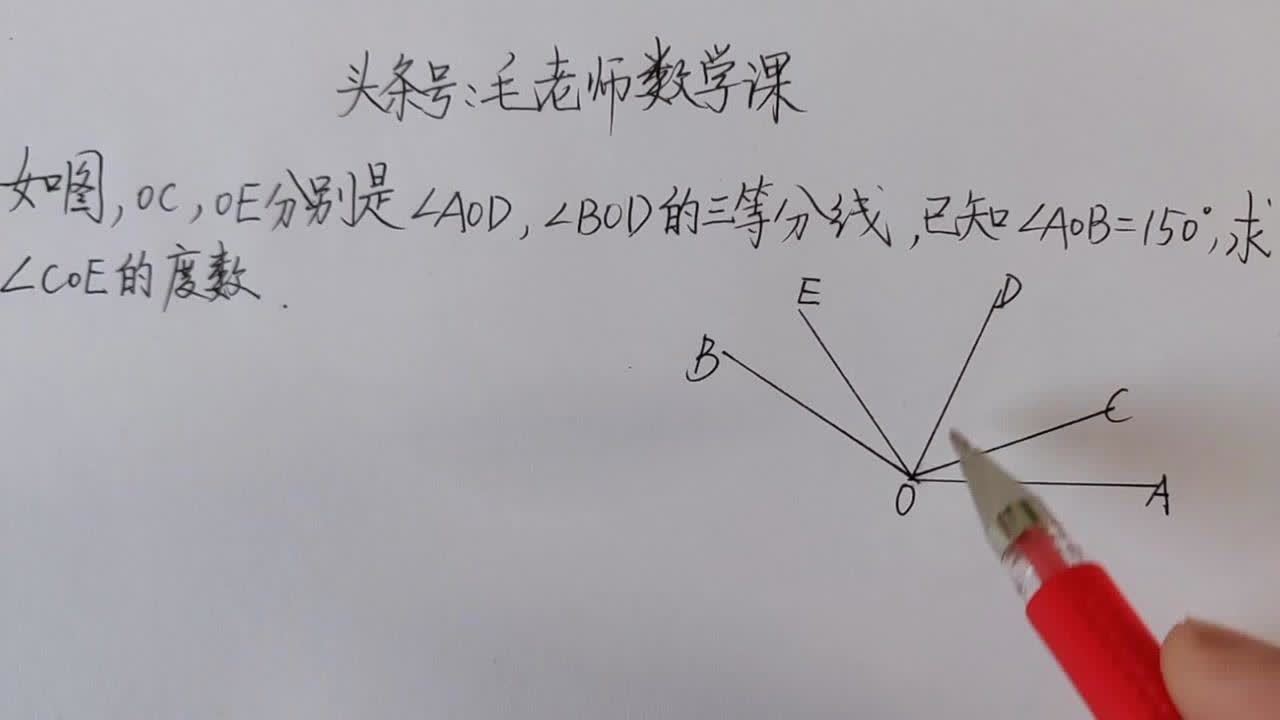 头条号:毛老师数学课
如图,OC,OE分别是∠AOD,∠BOD的三等分线,已知∠AOB=150°,求
∠COE的度数.
E
D
B
C
O
A